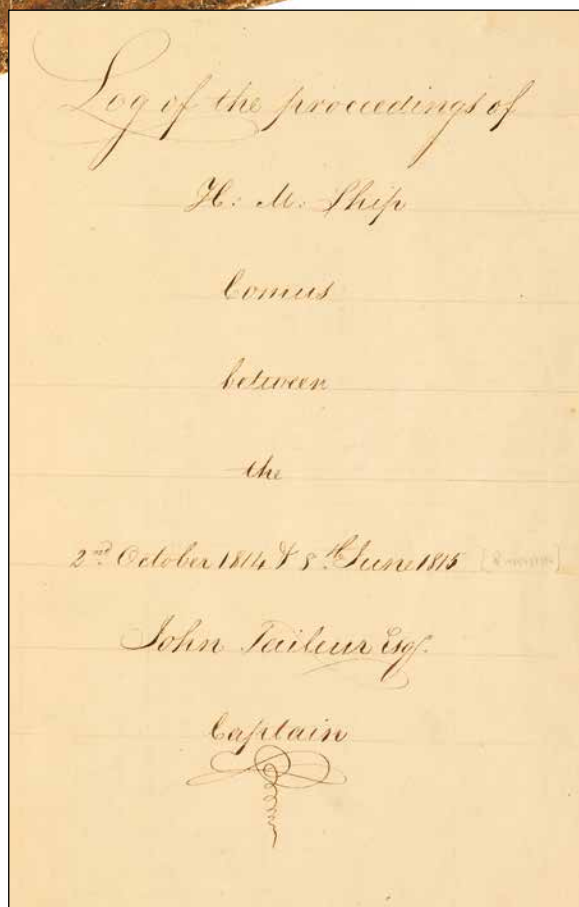 Log of the proceedings of
H: M: Ship
Comus
between
the
2nd October 1814 & 8th June 1815
John Tailour Esqr.
Captain